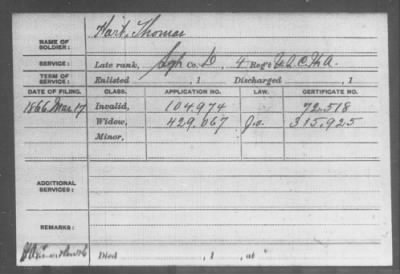 Hart, Thomas
NAME OF SOLDIER:
SERVICE: Late rank, Co. D, 4 Reg't U.S.C.H.A.
TERM OF SERVICE: Enlisted , 1 Discharged , 1
DATE OF FILING. CLASS. APPLICATION NO. LAW. CERTIFICATE NO.
1866 Mar. 17 Invalid, 104.974 72.518
Widow, 429.067 315.925
Minor,
ADDITIONAL SERVICES:
REMARKS:
Died , 1 , at